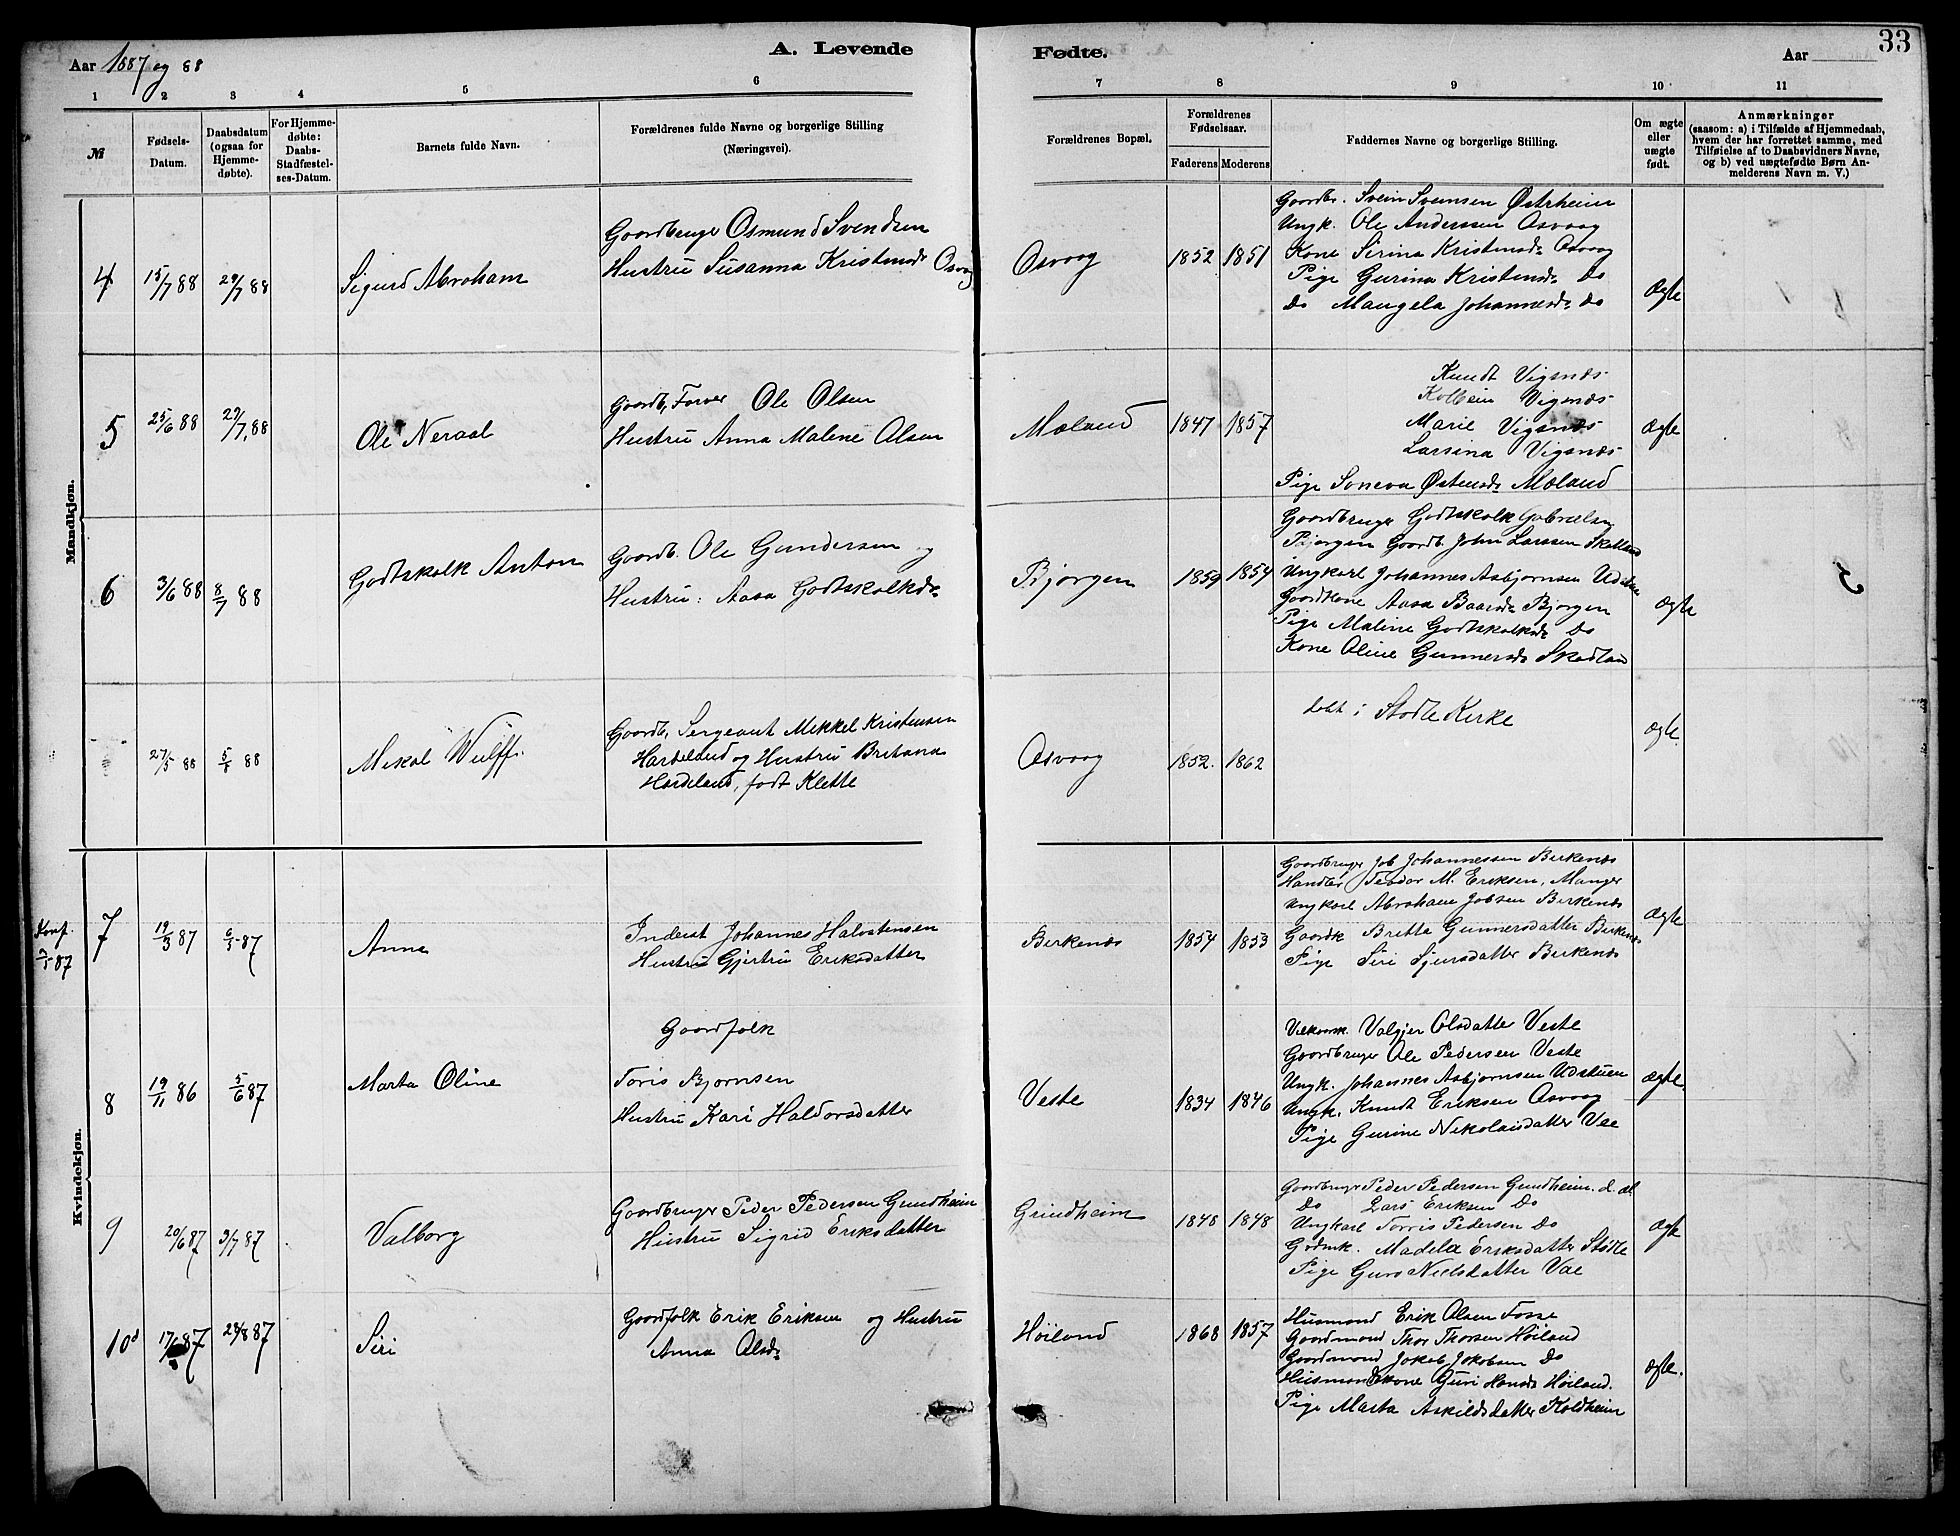 A. Levende Fødte.
33
Aar 1887 og 88
Aar
1 2 3 4 5 6 7 8 9 10 11
№
Fødsels-
Datum.
Daabsdatum
(ogsaa for
Hjemme-
døbte).
For Hjemme-
døbte:
Daabs-
Stadfæstel-
ses-Datum.
Barnets fulde Navn.
Forældrenes fulde Navne og borgerlige Stilling
(Næringsvei).
Forældrenes Bopæl.
Forældrenes
Fødselsaar.
Faderens Moderens
Faddernes Navne og borgerlige Stilling.
Om ægte
eller
uægte
født.
Anmærkninger
(saasom: a) i Tilfælde af Hjemmedaab,
hvem der har forrettet samme, med
Tilføielse af to Daabsvidners Navne,
og b) ved uægtefødte Børn An-
melderens Navn m. V.)
Mandkjøn.
4
15/7 88
29/7 88
Sigurd Abraham
Gaardbruger Osmund Svendsen
Hustru Susanna Kristensdr Osvaag
Osvaag
1852
1851
Gaardbr. Svein Svensen Østrheim
Ungk. Ole Anderssen Osvaag
Kone Sirina Kristensdr Osvaag
Pige Gurina Kristensdr Do
Do Mangela Johannesdr Do
Ægte
5
25/6 88
29/7 88
Ole Neraal
Gaardb, Farver Ole Olsen
Hustru Anna Malene Olsen
Mæland
1847
1857
Knudt Vigsnæs
Kolbein Vigsnæs
Marie Vigsnæs
Larsina Vigsnæs
Pige Soneva Østensdr Mæland
Ægte
6
3/6 88
8/7 88
Godtskalk Anton
Gaardb. Ole Gundersen og
Hustru: Aasa Godtskalksdr
Bjørgen
1859
1854
Gaardbruger Godtskalk Gabrielsen
Bjørgen Gaardb John Larssen Skatland
Ungkarl Johannes Asbjørnsen Udstuen
Gaardkone Aasa Baarsdr Bjørgen
Pige Maline Godtskalksdr Do
Kone Oline Gunnersdr Skadlan
Ægte
27/5 88
5/8 88
Mikal Wulff.
Gaardb, Sergeant Mekkel Kristensen
Hardeland og Hustru Britana
Hardeland, født Klette
Osvaag
1852.
1862
døbt i Stødle Kirke
ægte.
Kvindekjøn.
Konf.
87
7
19/3 87
87
Anna
Inderst Johannes Halvstensen
Hustru Gjertru Eriksdatter
Birkenæs
1854
1853
Gaardbruger Job Johannessen Birkenæs
Handler Teodor M. Eriksen, Manger
Ungkarl Abraham Jobsen Birkenæs
Gaardk Britte Gunnersdatter Birkenæs
Pige Siri Sjursdatter Birkenæs
Ægte
8
19/11 86
5/6 87
Marta Oline
Gaardfolk
Toris Bjørnsen
Hustru Kari Haldorsdatter
Veste
1834
1846
Valgjer Olsdatter Veste
Gaardbruger Ole Pedersen Veste
Ungk. Johannes Asbjørnsen Udstuen
Ungk. Knudt Eriksen Osvaag
Pige Gurine Nikolaisdatter Vae
Ægte
9
20/6 87
3/7 87
Valborg
Gaardbruger Peder Pedersen Grindheim
Hustru Sigrid Eriksdatter
Grindheim
1848
1848
Gaardbruger Peder Pedersen Grindheim. d. æl
Do Lars Eriksen Do
Ungkarl Torris Pedersen Do
Madela Eriksdatter Stødle
Pige Guro Nielsdatter Vae
Ægte
10
87
28/8 87
Siri
Gaardfolk Erik Eriksen og Hustru
Anna Olsdr
Høiland
1868
1857
Husmand Erik Olsen Fosse
Gaardmand Thor Thorsen Høiland
Gaardmand Jakob Jakobsen Do
Husmandskone Guri Hansdr Høiland.
Pige Marta Askildsdatter Koldheim
Ægte.